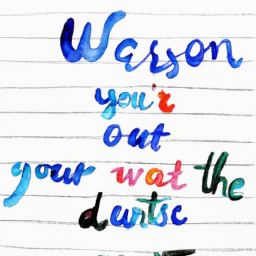 Warson
you't
out
your wat the
duntsc